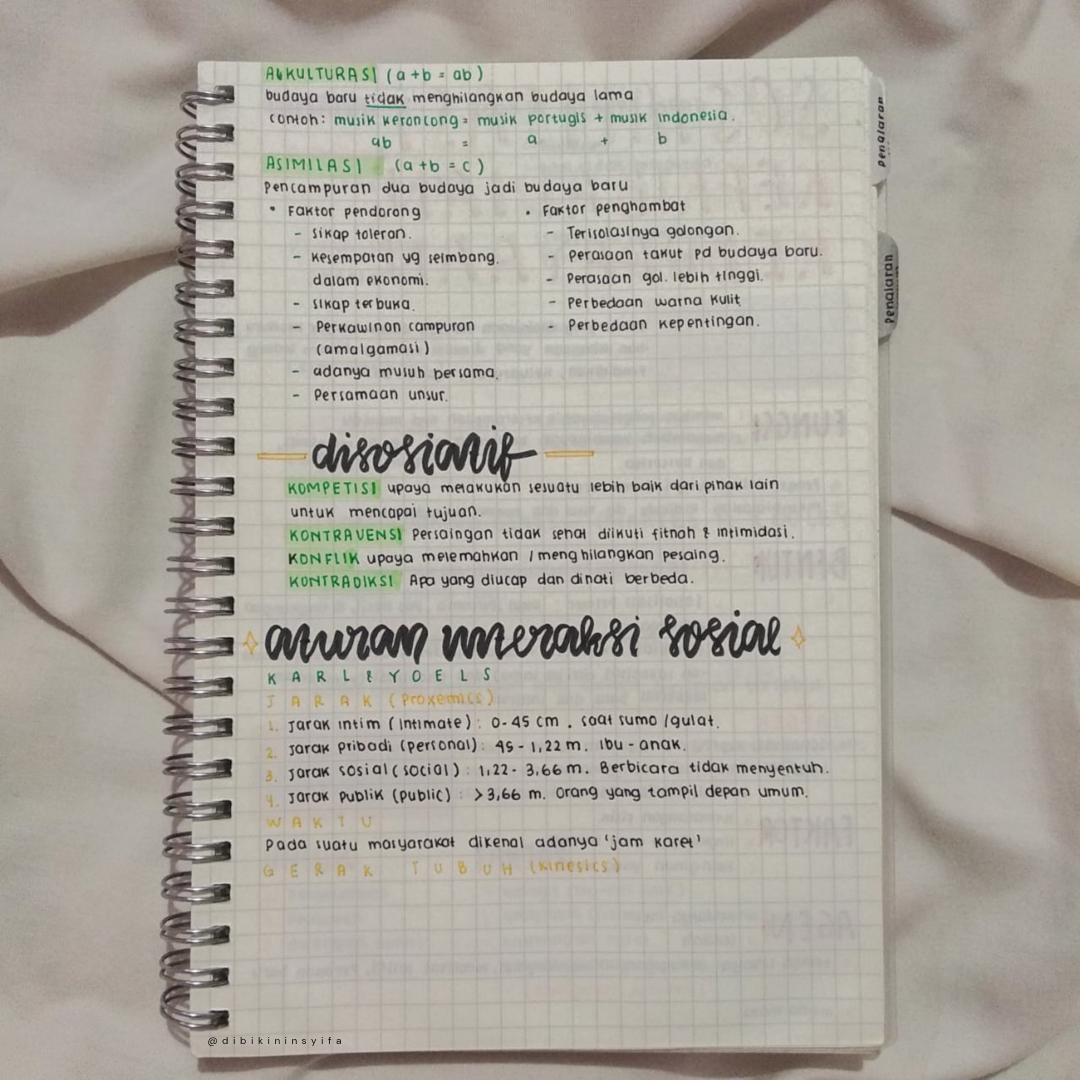 AKULTURASI (a+b = ab)
budaya baru tidak menghilangkan budaya lama
contoh: musik keroncong = musik portugis + musik indonesia.
ab = a + b
ASIMILASI (a+b = c)
Pencampuran dua budaya jadi budaya baru
• Faktor pendorong
- sikap toleran.
- kesempatan yg seimbang.
dalam ekonomi.
- sikap terbuka.
- Perkawinan campuran
(amalgamasi)
- adanya musuh bersama.
- Persamaan unsur.
• Faktor penghambat
- Terisolasinya golongan.
- Perasaan takut pd budaya baru.
- Perasaan gol. lebih tinggi.
- Perbedaan warna kulit
- Perbedaan kepentingan.
disosiatif
KOMPETISI upaya melakukan sesuatu lebih baik dari pihak lain
untuk mencapai tujuan.
KONTRAVENSI Persaingan tidak sehat diikuti fitnah & intimidasi.
KONFLIK upaya melemahkan / menghilangkan pesaing.
KONTRADIKSI Apa yang diucap dan dihati berbeda.
aturan interaksi sosial
KARL & YOELS
JARAK (Proxemics)
1. Jarak intim (intimate) : 0-45 cm. saat sumo /gulat.
2. Jarak pribadi (personal) : 45 - 1,22 m. Ibu - anak.
3. Jarak sosial (social) : 1,22 - 3,66 m. Berbicara tidak menyentuh.
4. Jarak publik (public) : >3,66 m. Orang yang tampil depan umum.
WAKTU
Pada suatu masyarakat dikenal adanya 'jam karet'
GERAK TUBUH (kinesics)
Penalaran
Penalaran
@dibikininsyifa